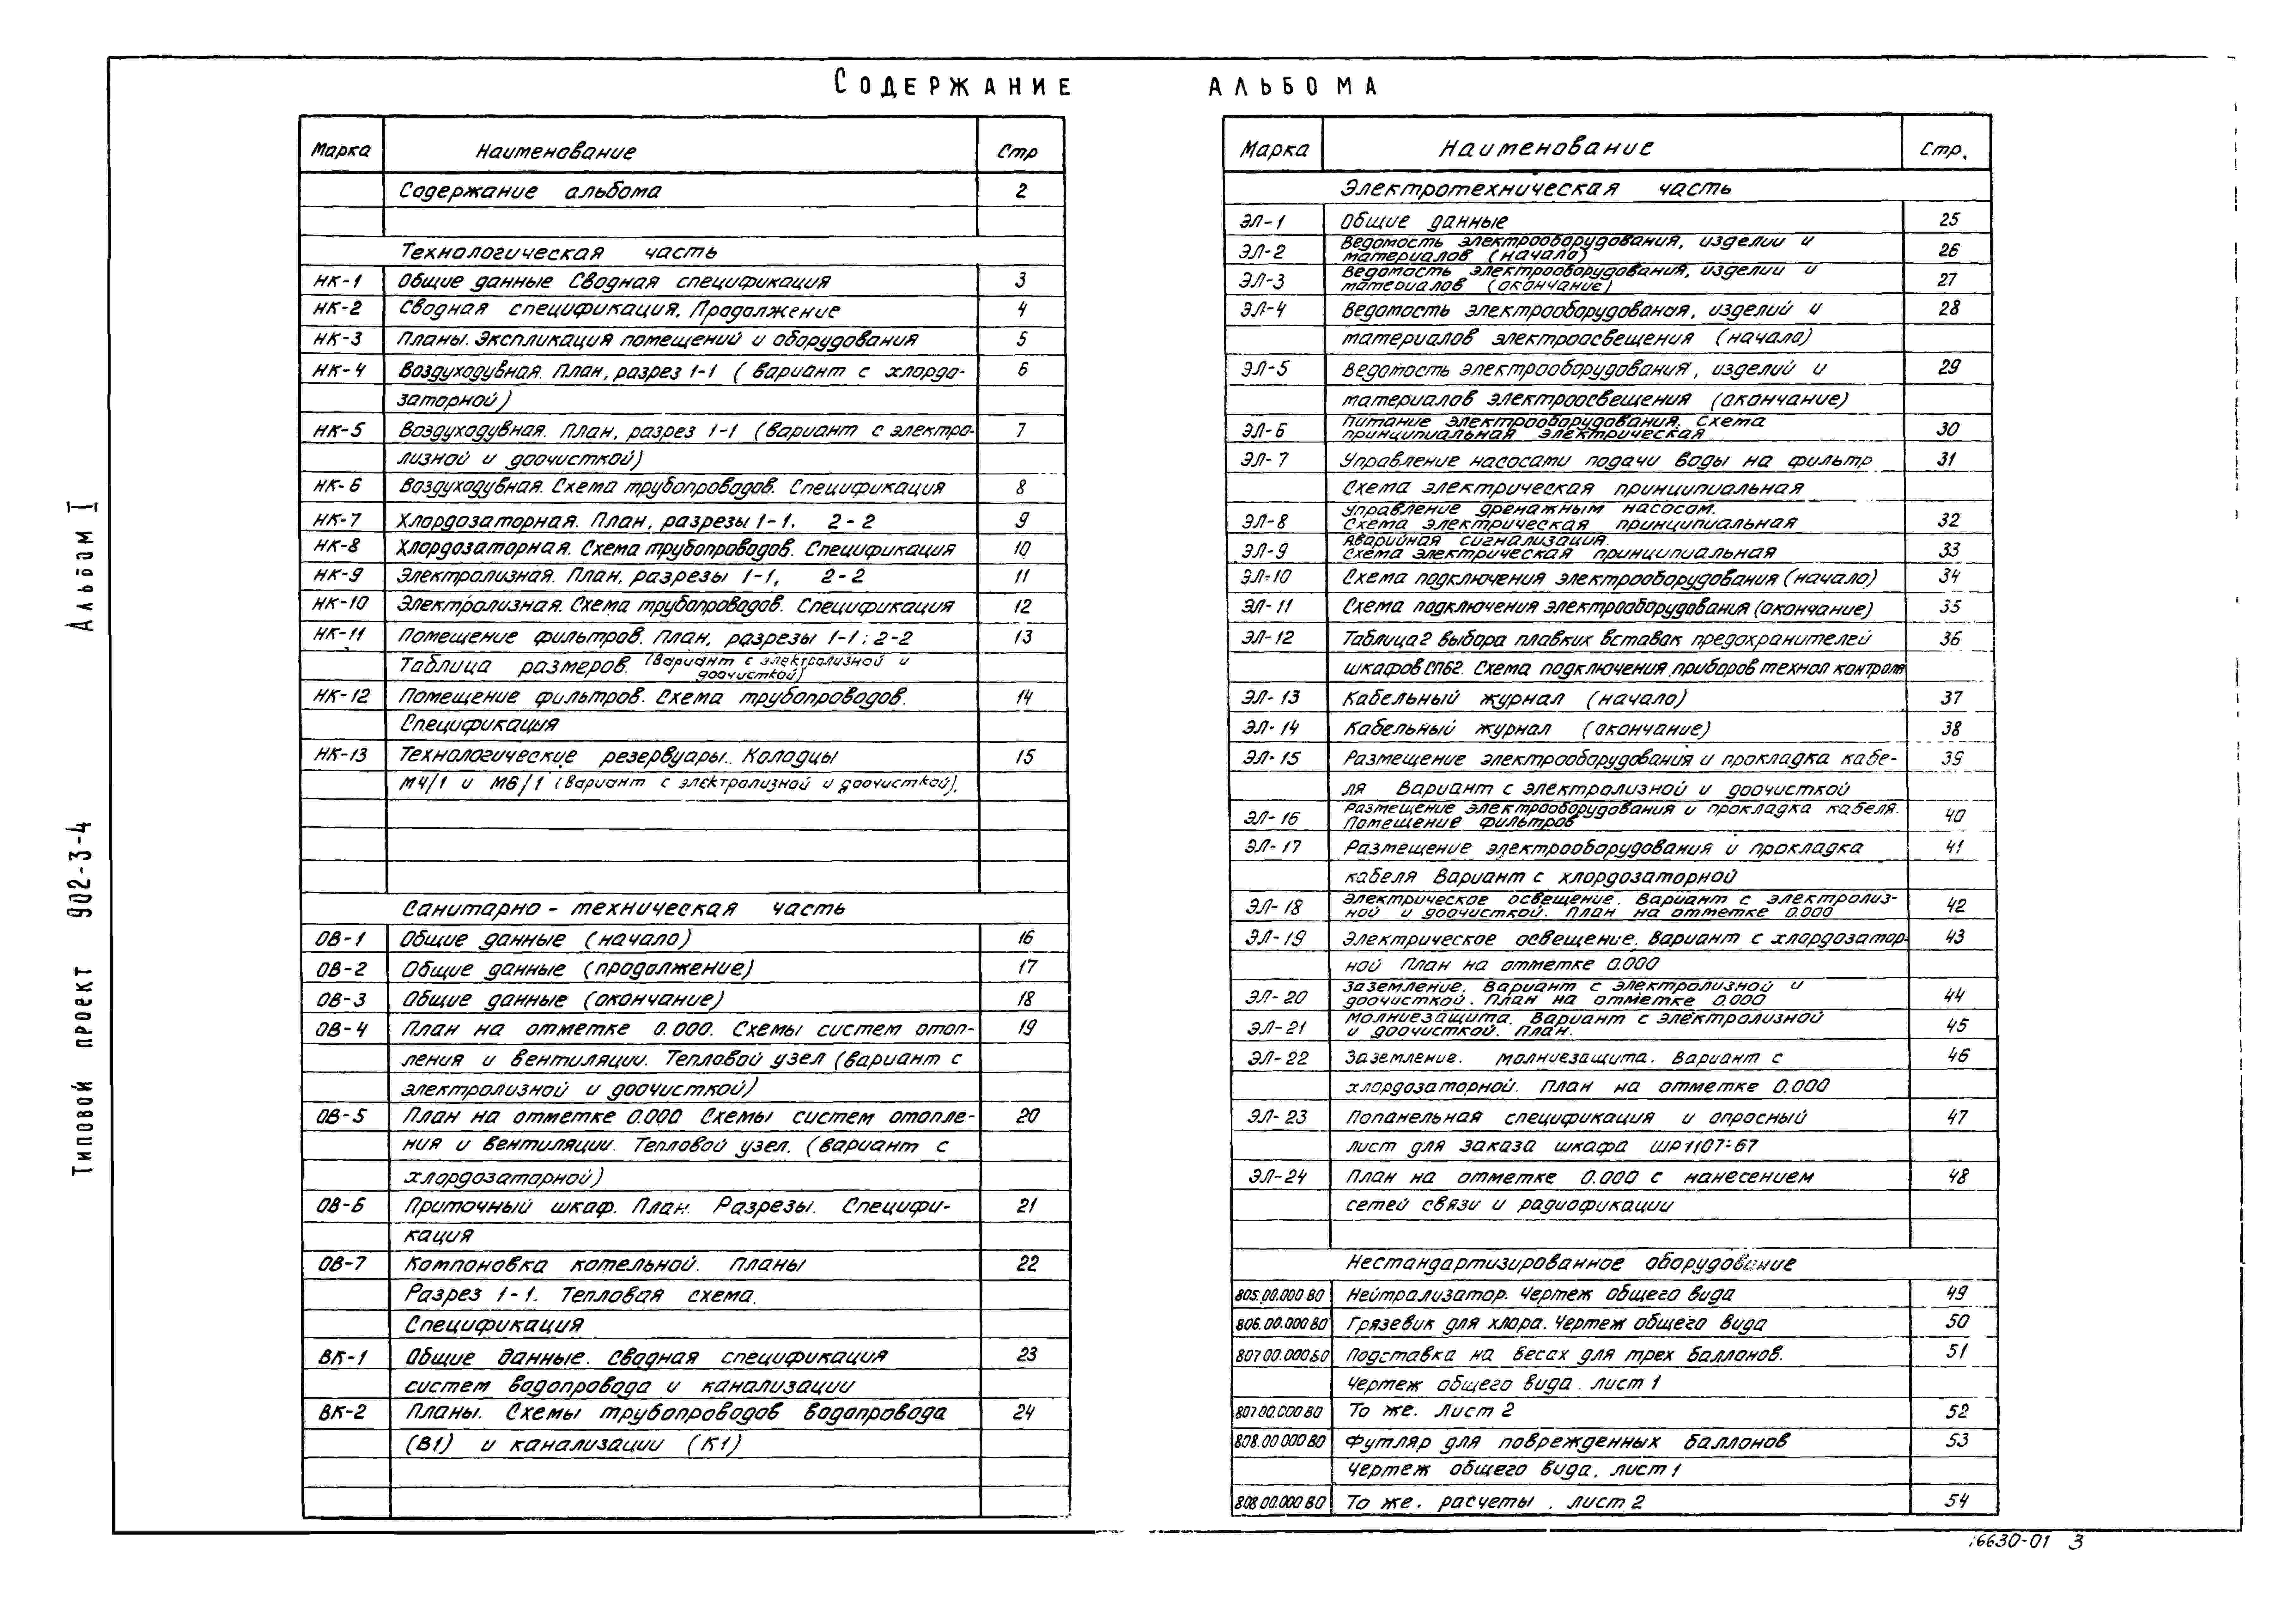 Содержание альбома
Марка Наименование Стр
Содержание альбома 2
Технологическая часть
НК-1 Общие данные Сводная спецификация 3
НК-2 Сводная спецификация. Продолжение 4
НК-3 Планы. Экспликация помещений и оборудования 5
НК-4 Воздуходувная. План, разрез 1-1 (вариант с хлордо-
заторной) 6
НК-5 Воздуходувная. План, разрез 1-1 (вариант с электро- 7
лизной и доочисткой)
НК-6 Воздуходувная. Схема трубопроводов. Спецификация 8
НК-7 Хлордозаторная. План, разрезы 1-1, 2-2 9
НК-8 Хлордозаторная. Схема трубопроводов. Спецификация 10
НК-9 Электролизная. План, разрезы 1-1, 2-2 11
НК-10 Электролизная. Схема трубопроводов. Спецификация 12
НК-11 Помещение фильтров. План, разрезы 1-1; 2-2 13
Таблица размеров. (Вариант с электролизной и
доочисткой)
НК-12 Помещение фильтров. Схема трубопроводов. 14
Спецификация
НК-13 Технологические резервуары. Колодцы 15
М4/1 и М6/1 (Вариант с электролизной и доочисткой).
Санитарно-техническая часть
ОВ-1 Общие данные (начало) 16
ОВ-2 Общие данные (продолжение) 17
ОВ-3 Общие данные (окончание) 18
ОВ-4 План на отметке 0.000. Схемы систем отоп- 19
ления и вентиляции. Тепловой узел (вариант с
электролизной и доочисткой)
ОВ-5 План на отметке 0.000 Схемы систем отопле- 20
ния и вентиляции. Тепловой узел. (вариант с
хлордозаторной)
ОВ-6 Приточный шкаф. План. Разрезы. Специфи- 21
кация
ОВ-7 Компоновка котельной. Планы 22
Разрез 1-1. Тепловая схема.
Спецификация
ВК-1 Общие данные. Сводная спецификация 23
систем водопровода и канализации
ВК-2 Планы. Схемы трубопроводов водопровода 24
(В1) и канализации (К1)
Марка Наименование Стр.
Электротехническая часть
ЭЛ-1 Общие данные 25
ЭЛ-2 Ведомость электрооборудования, изделии и 26
материалов (начало)
ЭЛ-3 Ведомость электрооборудования, изделии и 27
материалов (окончание)
ЭЛ-4 Ведомость электрооборудования, изделий и 28
материалов электроосвещения (начало)
ЭЛ-5 Ведомость электрооборудования, изделий и 29
материалов электроосвещения (окончание)
ЭЛ-6 Питание электрооборудования. Схема 30
принципиальная электрическая
ЭЛ-7 Управление насосами подачи воды на фильтр 31
Схема электрическая принципиальная
ЭЛ-8 Управление дренажным насосом. 32
Схема электрическая принципиальная
ЭЛ-9 Аварийная сигнализация. 33
Схема электрическая принципиальная
ЭЛ-10 Схема подключения электрооборудования (начало) 34
ЭЛ-11 Схема подключения электрооборудования (окончание) 35
ЭЛ-12 Таблица 2 выбора плавких вставок предохранителей 36
шкафов СПБ2. Схема подключения приборов технол контроля
ЭЛ-13 Кабельный журнал (начало) 37
ЭЛ-14 Кабельный журнал (окончание) 38
ЭЛ-15 Размещение электрооборудования и прокладка кабе- 39
ля Вариант с электролизной и доочисткой
ЭЛ-16 Размещение электрооборудования и прокладка кабеля. 40
Помещение фильтров
ЭЛ-17 Размещение электрооборудования и прокладка 41
кабеля Вариант с хлордозаторной
ЭЛ-18 Электрическое освещение. Вариант с электролиз- 42
ной и доочисткой. План на отметке 0.000
ЭЛ-19 Электрическое освещение. Вариант с хлордозатор- 43
ной План на отметке 0.000
ЭЛ-20 Заземление. Вариант с электролизной и 44
доочисткой. План на отметке 0.000
ЭЛ-21 Молниезащита. Вариант с электролизной 45
и доочисткой. План.
ЭЛ-22 Заземление. Молниезащита. Вариант с 46
хлордозаторной. План на отметке 0.000
ЭЛ-23 Попанельная спецификация и опросный 47
лист для заказа шкафа ШР1107-67
ЭЛ-24 План на отметке 0.000 с нанесением 48
сетей связи и радиофикации
Нестандартизированное оборудование
805.00.000 ВО Нейтрализатор. Чертеж общего вида 49
806.00.000 ВО Грязевик для хлора. Чертеж общего вида 50
807 00.000 ВО Подставка на весах для трех баллонов. 51
Чертеж общего вида. лист 1
807 00.000 ВО То же. Лист 2 52
808.00 000 ВО Футляр для поврежденных баллонов 53
Чертеж общего вида. лист 1
808 00.000 ВО То же. расчеты. лист 2 54
Типовой проект 902-3-4 Альбом I
6630-01 3